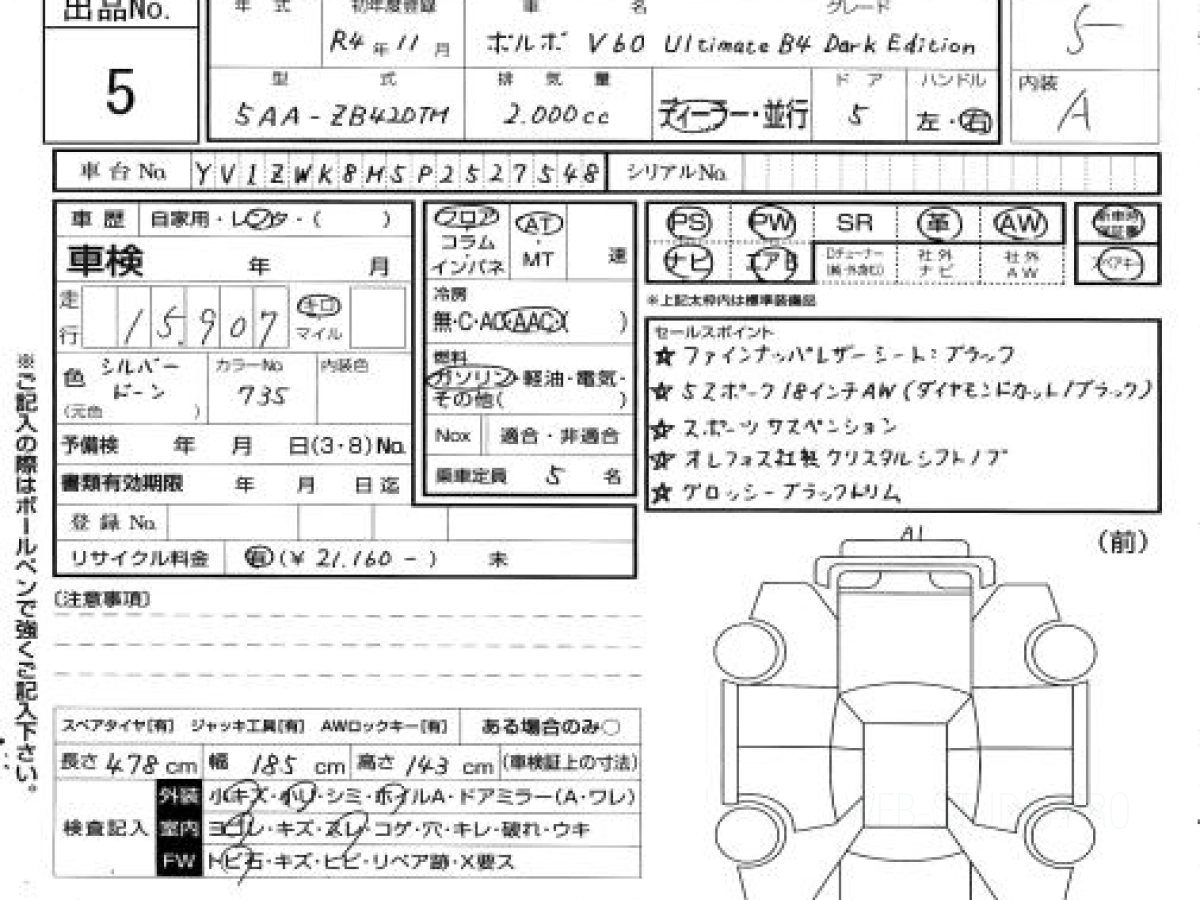 出品No. 年 式 初年度登録 車 名 グレード 5
R4 年 11 月 ボルボ V60 Ultimate B4 Dark Edition
5
型 式 排 気 量 ドア ハンドル 内装
5AA-ZB420TM 2.000cc ディーラー・並行 5 左・右 A
車台No. YV1ZWK8H5P2527548 シリアルNo.
車歴 自家用・レンタ・( )
車検 年 月
走行 15,907 キロ マイル
色 シルバードーン カラーNo 735 内装色
(元色 )
予備検 年 月 日(3・8)No.
書類有効期限 年 月 日迄
登録No.
リサイクル料金 有(¥21.160-) 未
フロア AT
コラム ・
インパネ MT 速
冷房
無・C・AC・AAC・( )
燃料
ガソリン・軽油・電気・
その他( )
Nox 適合・非適合
乗車定員 5 名
PS PW SR 革 AW 新車時保証書
ナビ エアB Dチューナー(純・外含む) 社外ナビ 社外AW スペアキー
※上記太枠内は標準装備品
セールスポイント
☆ファインナッパレザーシート:ブラック
☆5スポーク18インチAW(ダイヤモンドカット/ブラック)
☆スポーツサスペンション
☆オレフォス社製クリスタルシフトノブ
☆グロッシーブラックトリム
(注意事項)
スペアタイヤ[有] ジャッキ工具[有] AWロックキー[有] ある場合のみ○
長さ 478 cm 幅 185 cm 高さ 143 cm (車検証上の寸法)
検査記入
外装 小キズ・小U・シミ・ホイルA・ドアミラー(A・ワレ)
室内 ヨゴレ・キズ・スレ・コゲ・穴・キレ・破れ・ウキ
FW トビ石・キズ・ヒビ・リペア跡・X要ス
A1
(前)
※ご記入の際はボールペンで強くご記入下さい。